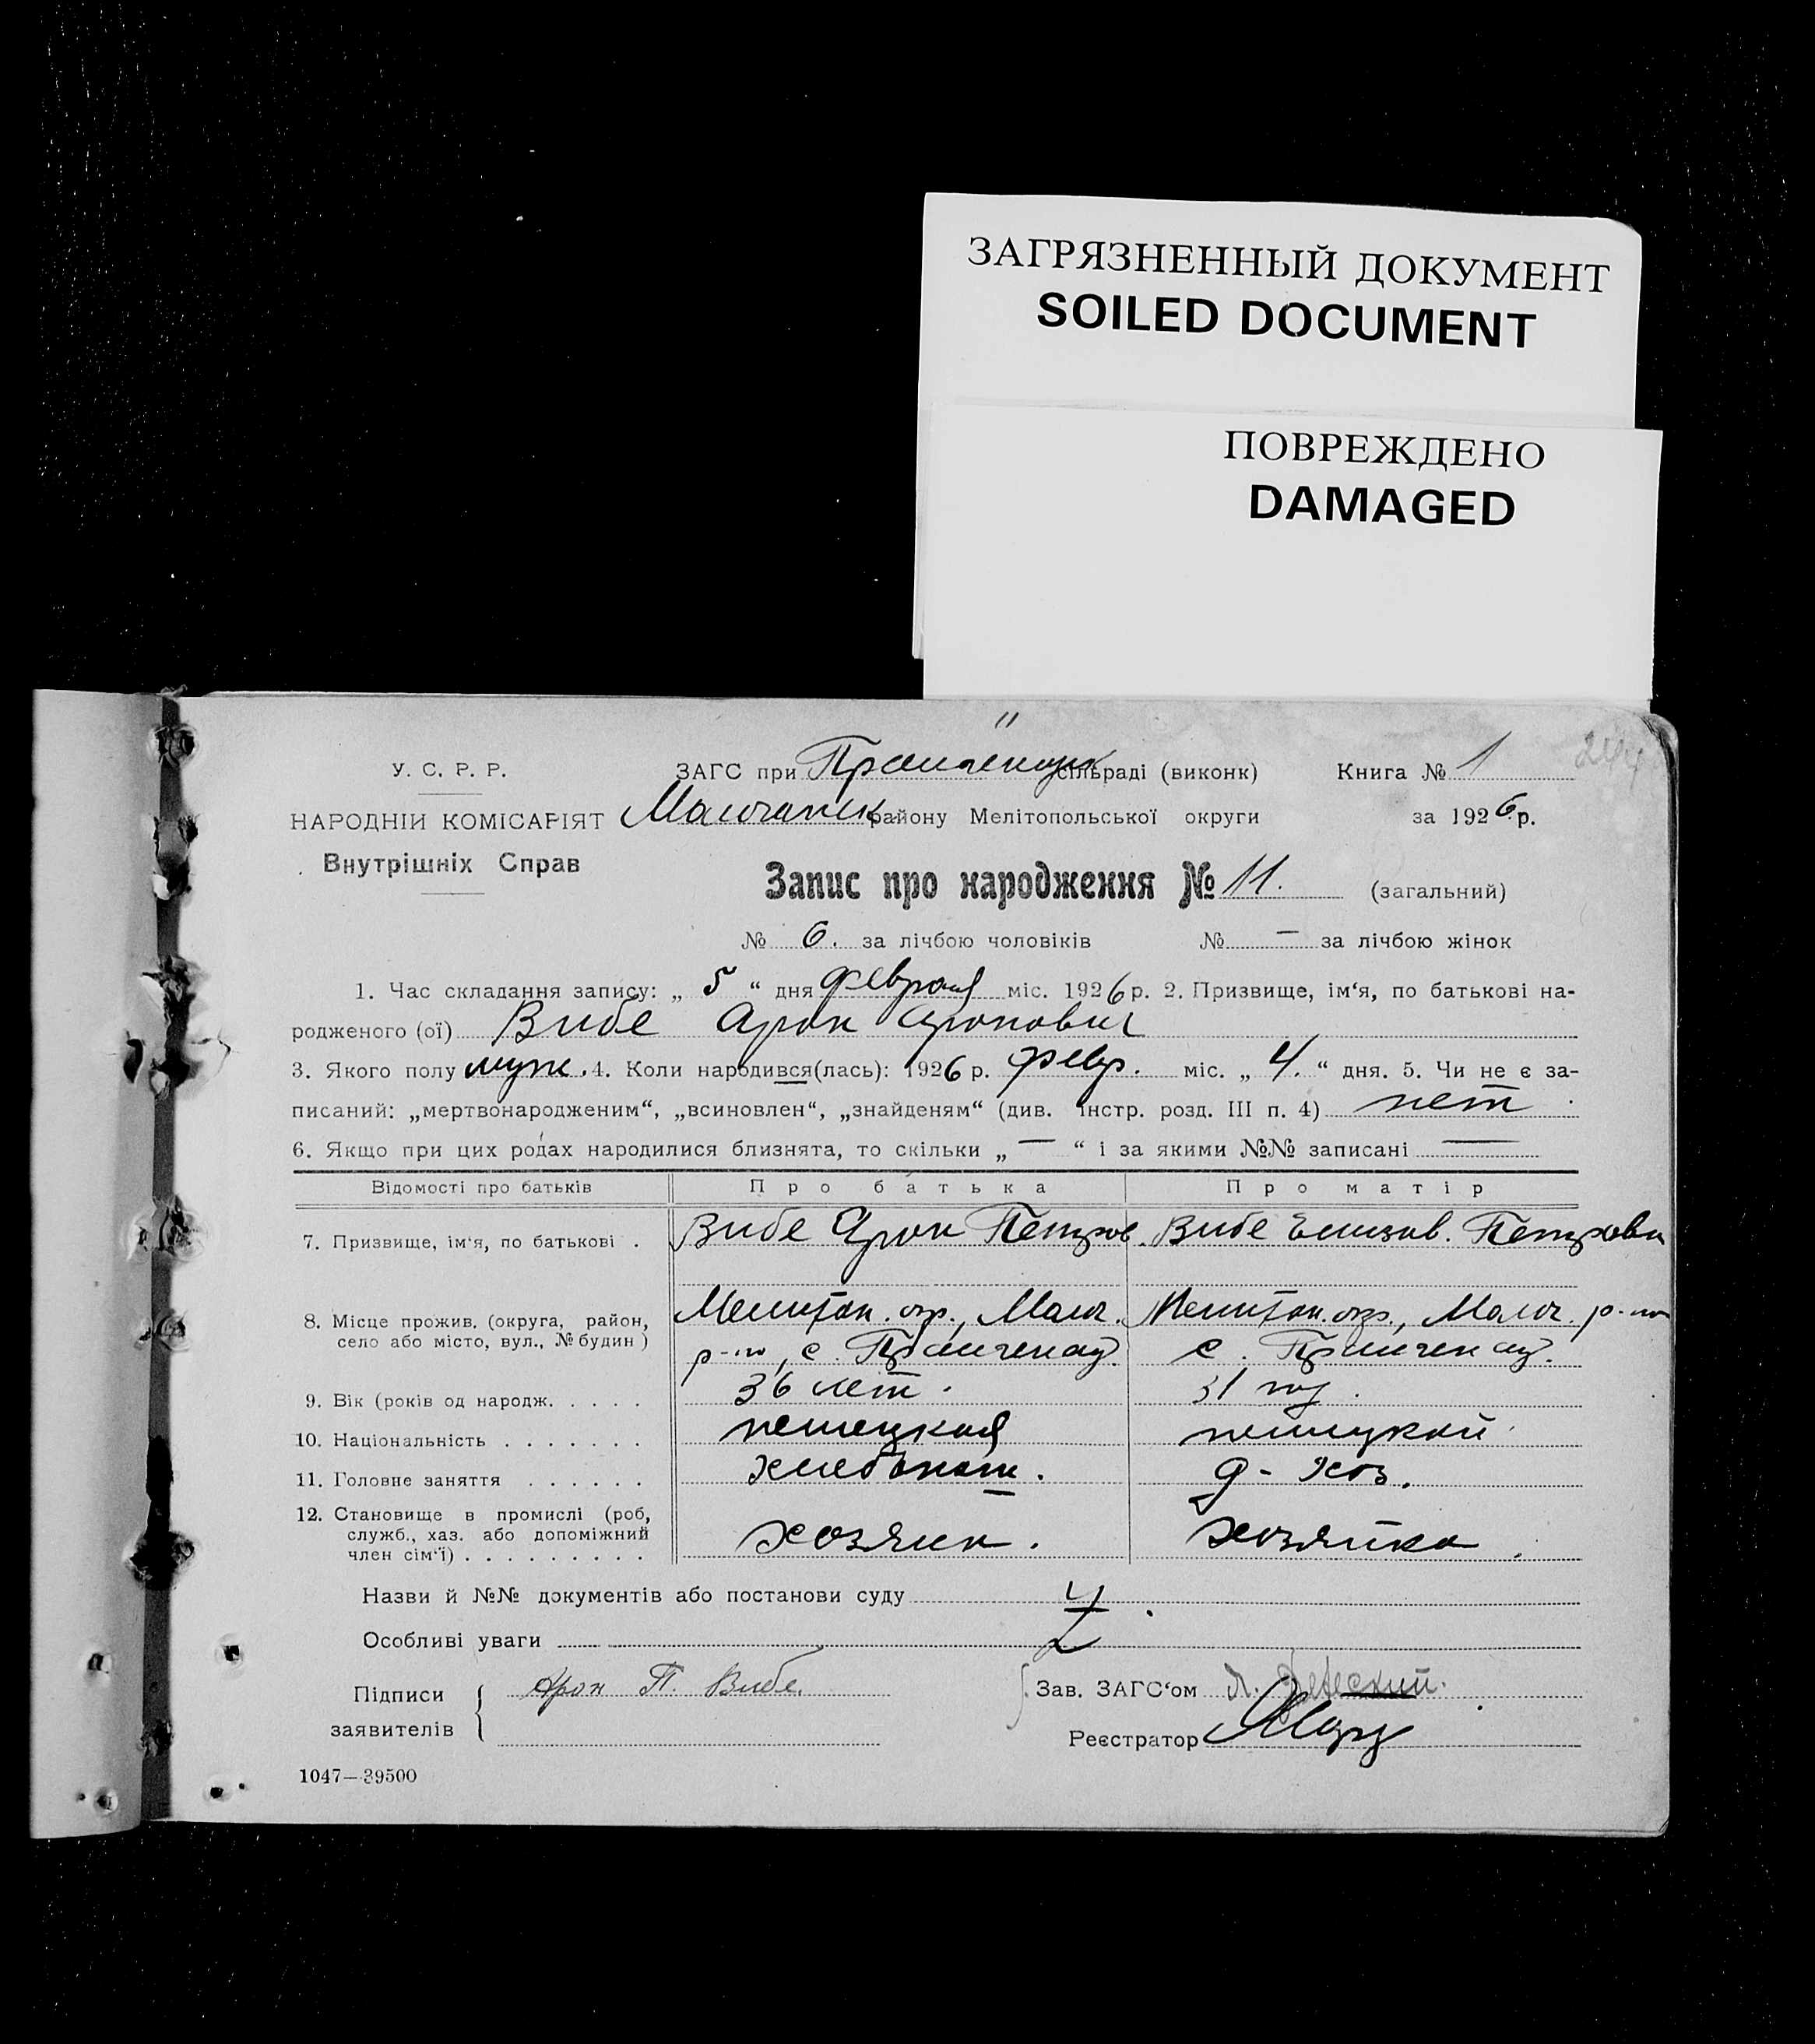 ЗАГРЯЗНЕННЫЙ ДОКУМЕНТ
SOILED DOCUMENT
ПОВРЕЖДЕНО
DAMAGED
11
У. С. Р. Р.
НАРОДНІЙ КОМІСАРІЯТ
Внутрішніх Справ
ЗАГС при сільраді (виконк)
Молочанск району Мелітопольської округи
Книга № 1
244
за 1926 р.
Запис про народження № 11. (загальний)
№ 6. за лічбою чоловіків № — за лічбою жінок
1. Час складання запису: „ 5 “ дня февраля міс. 1926 р. 2. Призвище, ім‘я, по батькові на-
родженого (ої) Вибе Арон Аронович
3. Якого полу муж. 4. Коли народився(лась): 1926 р. февр. міс. „ 4. “ дня. 5. Чи не є за-
писаний: „мертвонародженим“, „всиновлен“, „знайденям“ (див. інстр. розд. III п. 4) нет
6. Якщо при цих родах народилися близнята, то скільки „ — “ і за якими №№ записані —
Відомості про батьків Про батька Про матір
7. Призвище, ім‘я, по батькові . Вибе Арон Петров. Вибе Елизав. Петровн
8. Місце прожив. (округа, район, Мелитоп. окр., Молоч. Мелитоп. окр., Молоч. р-но
село або місто, вул., № будин) р-но, с. Пришенау. с. Пришенау.
9. Вік (років од народж. . . . . 36 лет. 31 год.
10. Національність . . . . . . . немецкая немецкой
11. Головне заняття . . . . . . хлебопаш. д-хоз.
12. Становище в промислі (роб,
служб., хаз. або допоміжний хозяин. хозяйка.
член сім‘ї) . . . . . . . . .
Назви й №№ документів або постанови суду
Особливі уваги
Підписи
заявителів
Арон П. Вибе.
Зав. ЗАГС‘ом
Реєстратор
1047—39500